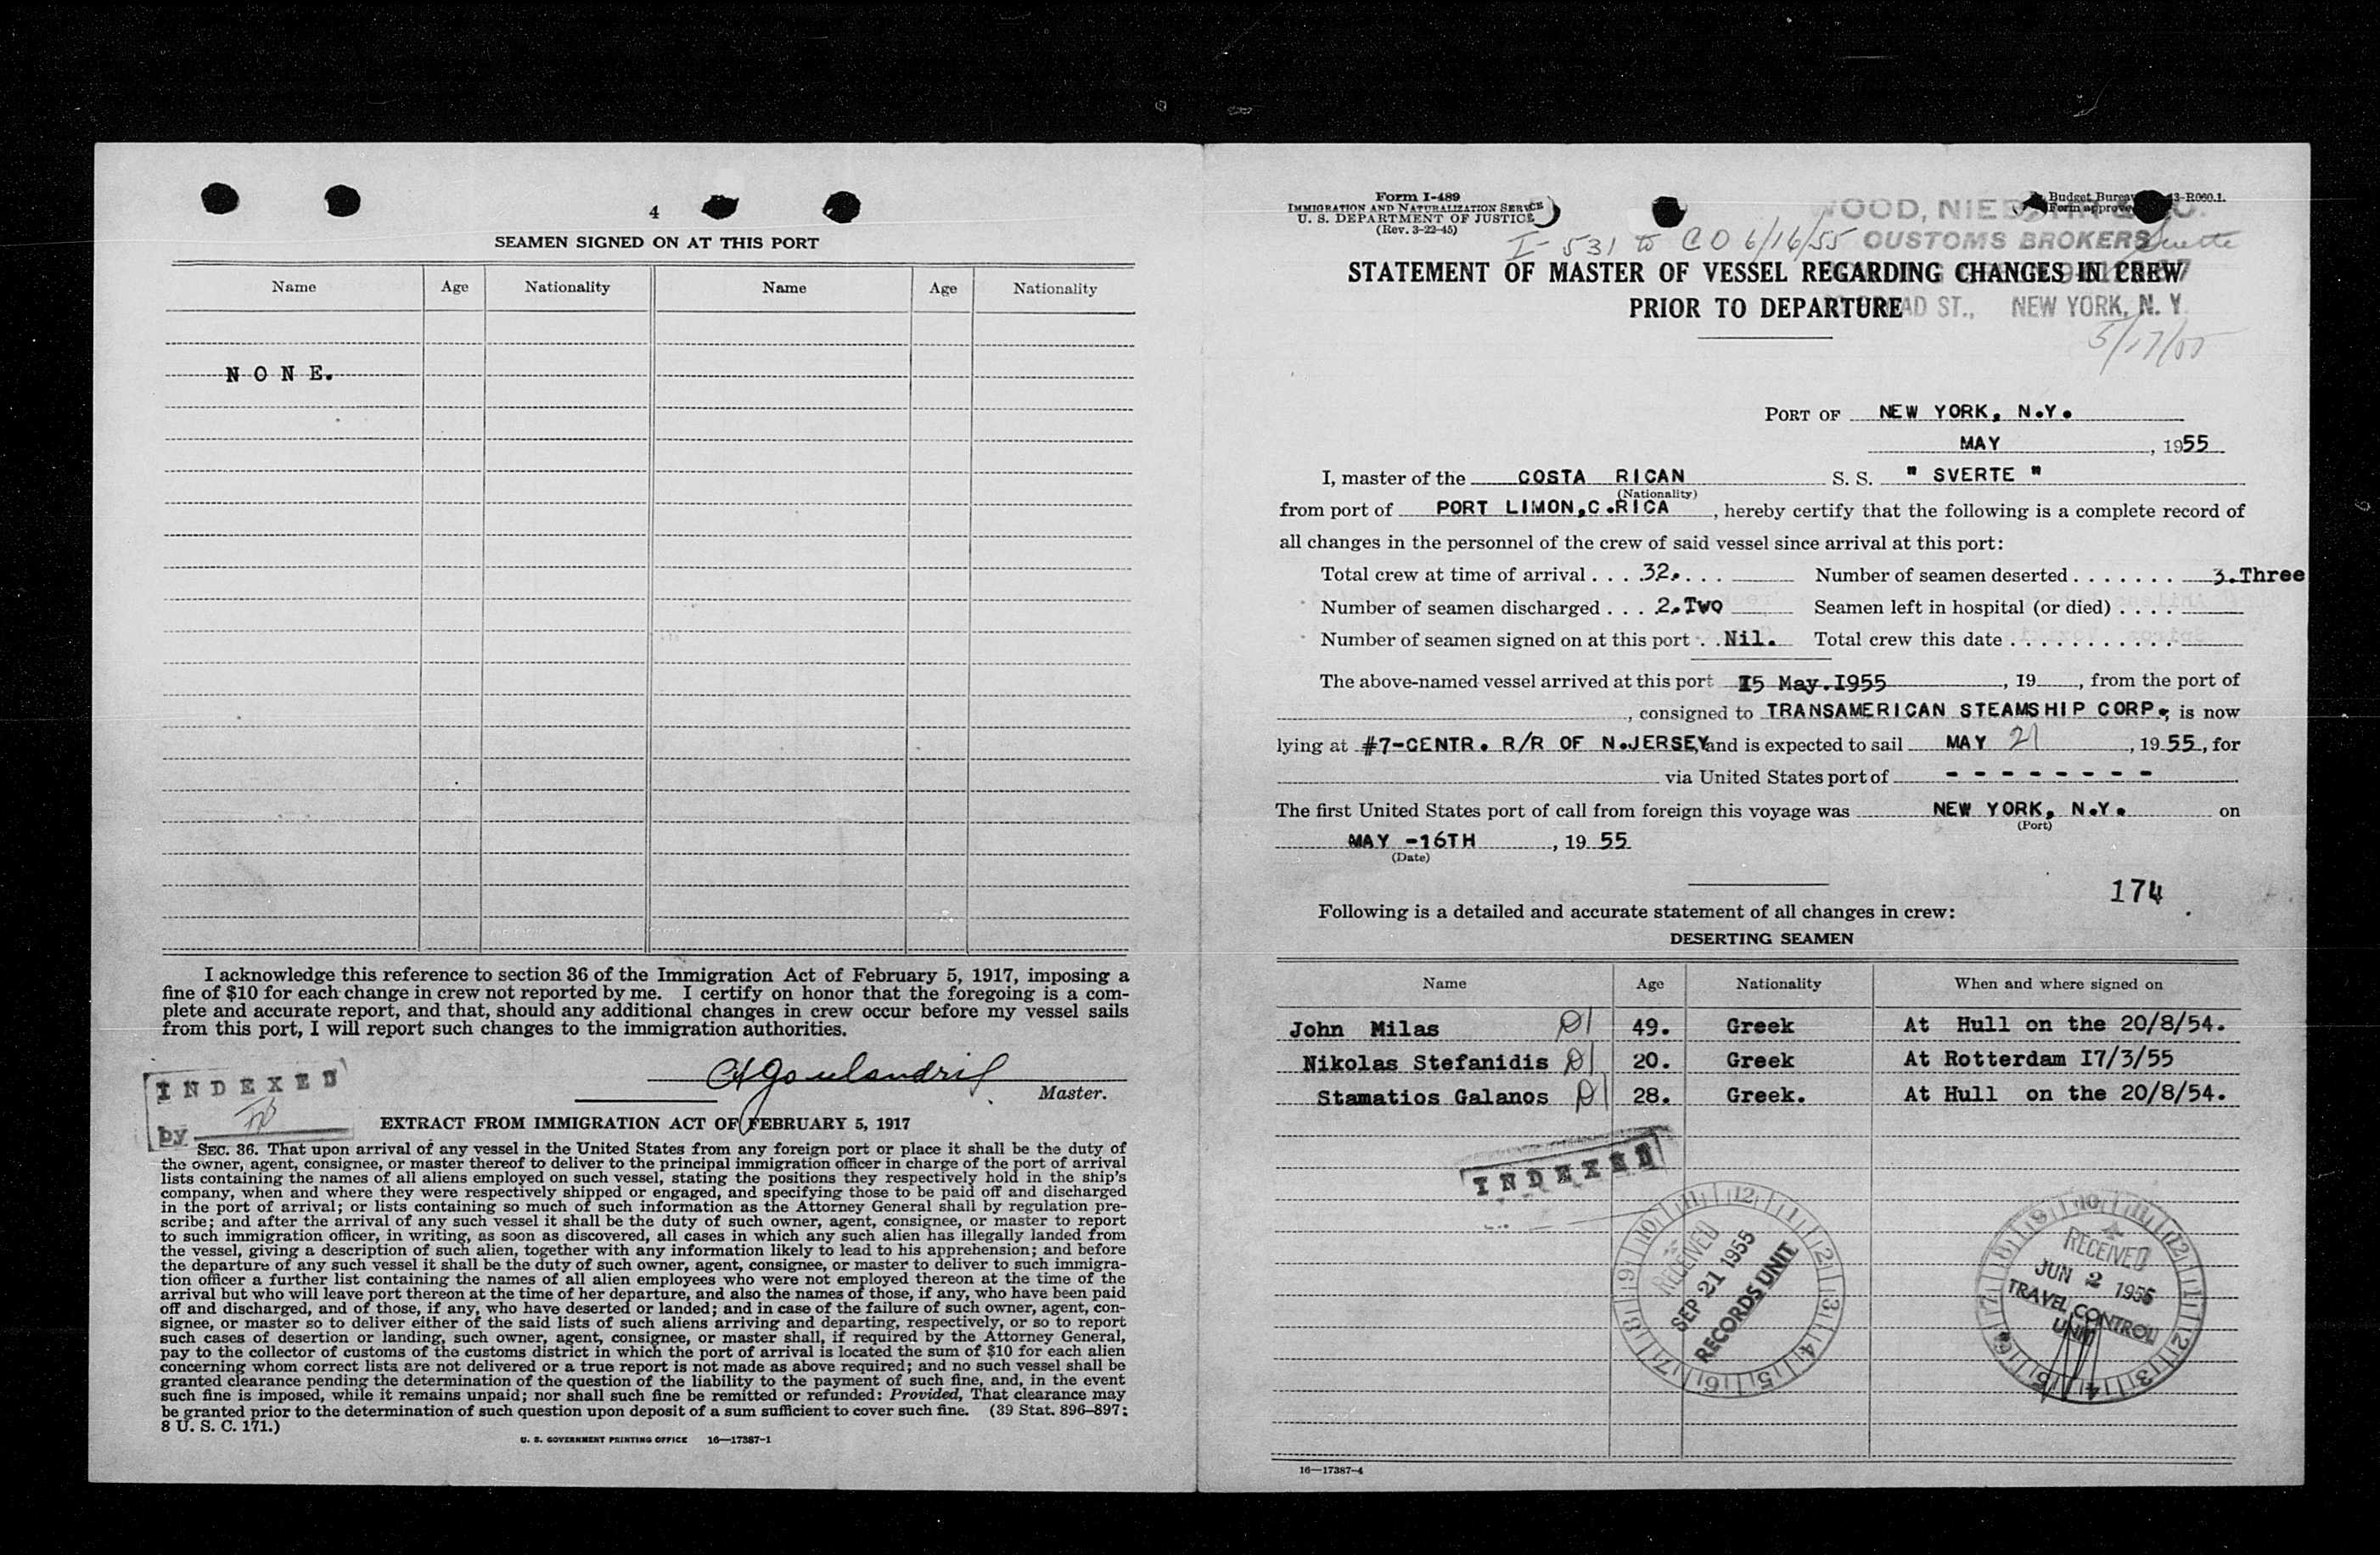 4
SEAMEN SIGNED ON AT THIS PORT
Name Age Nationality Name Age Nationality
N O N E.
I acknowledge this reference to section 36 of the Immigration Act of February 5, 1917, imposing a
fine of $10 for each change in crew not reported by me. I certify on honor that the foregoing is a com-
plete and accurate report, and that, should any additional changes in crew occur before my vessel sails
from this port, I will report such changes to the immigration authorities.
Master.
INDEXED
by
EXTRACT FROM IMMIGRATION ACT OF FEBRUARY 5, 1917
SEC. 36. That upon arrival of any vessel in the United States from any foreign port or place it shall be the duty of
the owner, agent, consignee, or master thereof to deliver to the principal immigration officer in charge of the port of arrival
lists containing the names of all aliens employed on such vessel, stating the positions they respectively hold in the ship's
company, when and where they were respectively shipped or engaged, and specifying those to be paid off and discharged
in the port of arrival; or lists containing so much of such information as the Attorney General shall by regulation pre-
scribe; and after the arrival of any such vessel it shall be the duty of such owner, agent, consignee, or master to report
to such immigration officer, in writing, as soon as discovered, all cases in which any such alien has illegally landed from
the vessel, giving a description of such alien, together with any information likely to lead to his apprehension; and before
the departure of any such vessel it shall be the duty of such owner, agent, consignee, or master to deliver to such immigra-
tion officer a further list containing the names of all alien employees who were not employed thereon at the time of the
arrival but who will leave port thereon at the time of her departure, and also the names of those, if any, who have been paid
off and discharged, and of those, if any, who have deserted or landed; and in case of the failure of such owner, agent, con-
signee, or master so to deliver either of the said lists of such aliens arriving and departing, respectively, or so to report
such cases of desertion or landing, such owner, agent, consignee, or master shall, if required by the Attorney General,
pay to the collector of customs of the customs district in which the port of arrival is located the sum of $10 for each alien
concerning whom correct lists are not delivered or a true report is not made as above required; and no such vessel shall be
granted clearance pending the determination of the question of the liability to the payment of such fine, and, in the event
such fine is imposed, while it remains unpaid; nor shall such fine be remitted or refunded: Provided, That clearance may
be granted prior to the determination of such question upon deposit of a sum sufficient to cover such fine. (39 Stat. 896–897;
8 U. S. C. 171.)
U. S. GOVERNMENT PRINTING OFFICE 16—17387-1
Form I-489
IMMIGRATION AND NATURALIZATION SERVICE
U. S. DEPARTMENT OF JUSTICE
(Rev. 3-22-45)
Budget Bureau 43-R060.1.
Form approved
I-531 to CO 6/16/55
CUSTOMS BROKERS
STATEMENT OF MASTER OF VESSEL REGARDING CHANGES IN CREW
PRIOR TO DEPARTURE
ST., NEW YORK, N. Y.
5/17/55
PORT OF NEW YORK, N.Y.
MAY , 1955
I, master of the COSTA RICAN S. S. " SVERTE "
(Nationality)
from port of PORT LIMON,C.RICA , hereby certify that the following is a complete record of
all changes in the personnel of the crew of said vessel since arrival at this port:
Total crew at time of arrival . . . . 32. . . . Number of seamen deserted . . . . . . . 3.Three
Number of seamen discharged . . . 2.Two Seamen left in hospital (or died) . . . .
Number of seamen signed on at this port . . Nil. Total crew this date . . . . . . . . . . .
The above-named vessel arrived at this port I5 May.I955 , 19 , from the port of
, consigned to TRANSAMERICAN STEAMSHIP CORP., is now
lying at #7-CENTR. R/R OF N.JERSEY, and is expected to sail MAY 21 , 1955, for
via United States port of - - - - - - - -
The first United States port of call from foreign this voyage was NEW YORK, N.Y. on
(Port)
MAY -16TH , 1955
(Date)
174
Following is a detailed and accurate statement of all changes in crew:
DESERTING SEAMEN
Name Age Nationality When and where signed on
John Milas 49. Greek At Hull on the 20/8/54.
Nikolas Stefanidis 20. Greek At Rotterdam I7/3/55
Stamatios Galanos 28. Greek. At Hull on the 20/8/54.
INDEXED
RECEIVED
SEP 21 1955
RECORDS UNIT
RECEIVED
JUN 2 1955
TRAVEL CONTROL
UNIT
16—17387-4